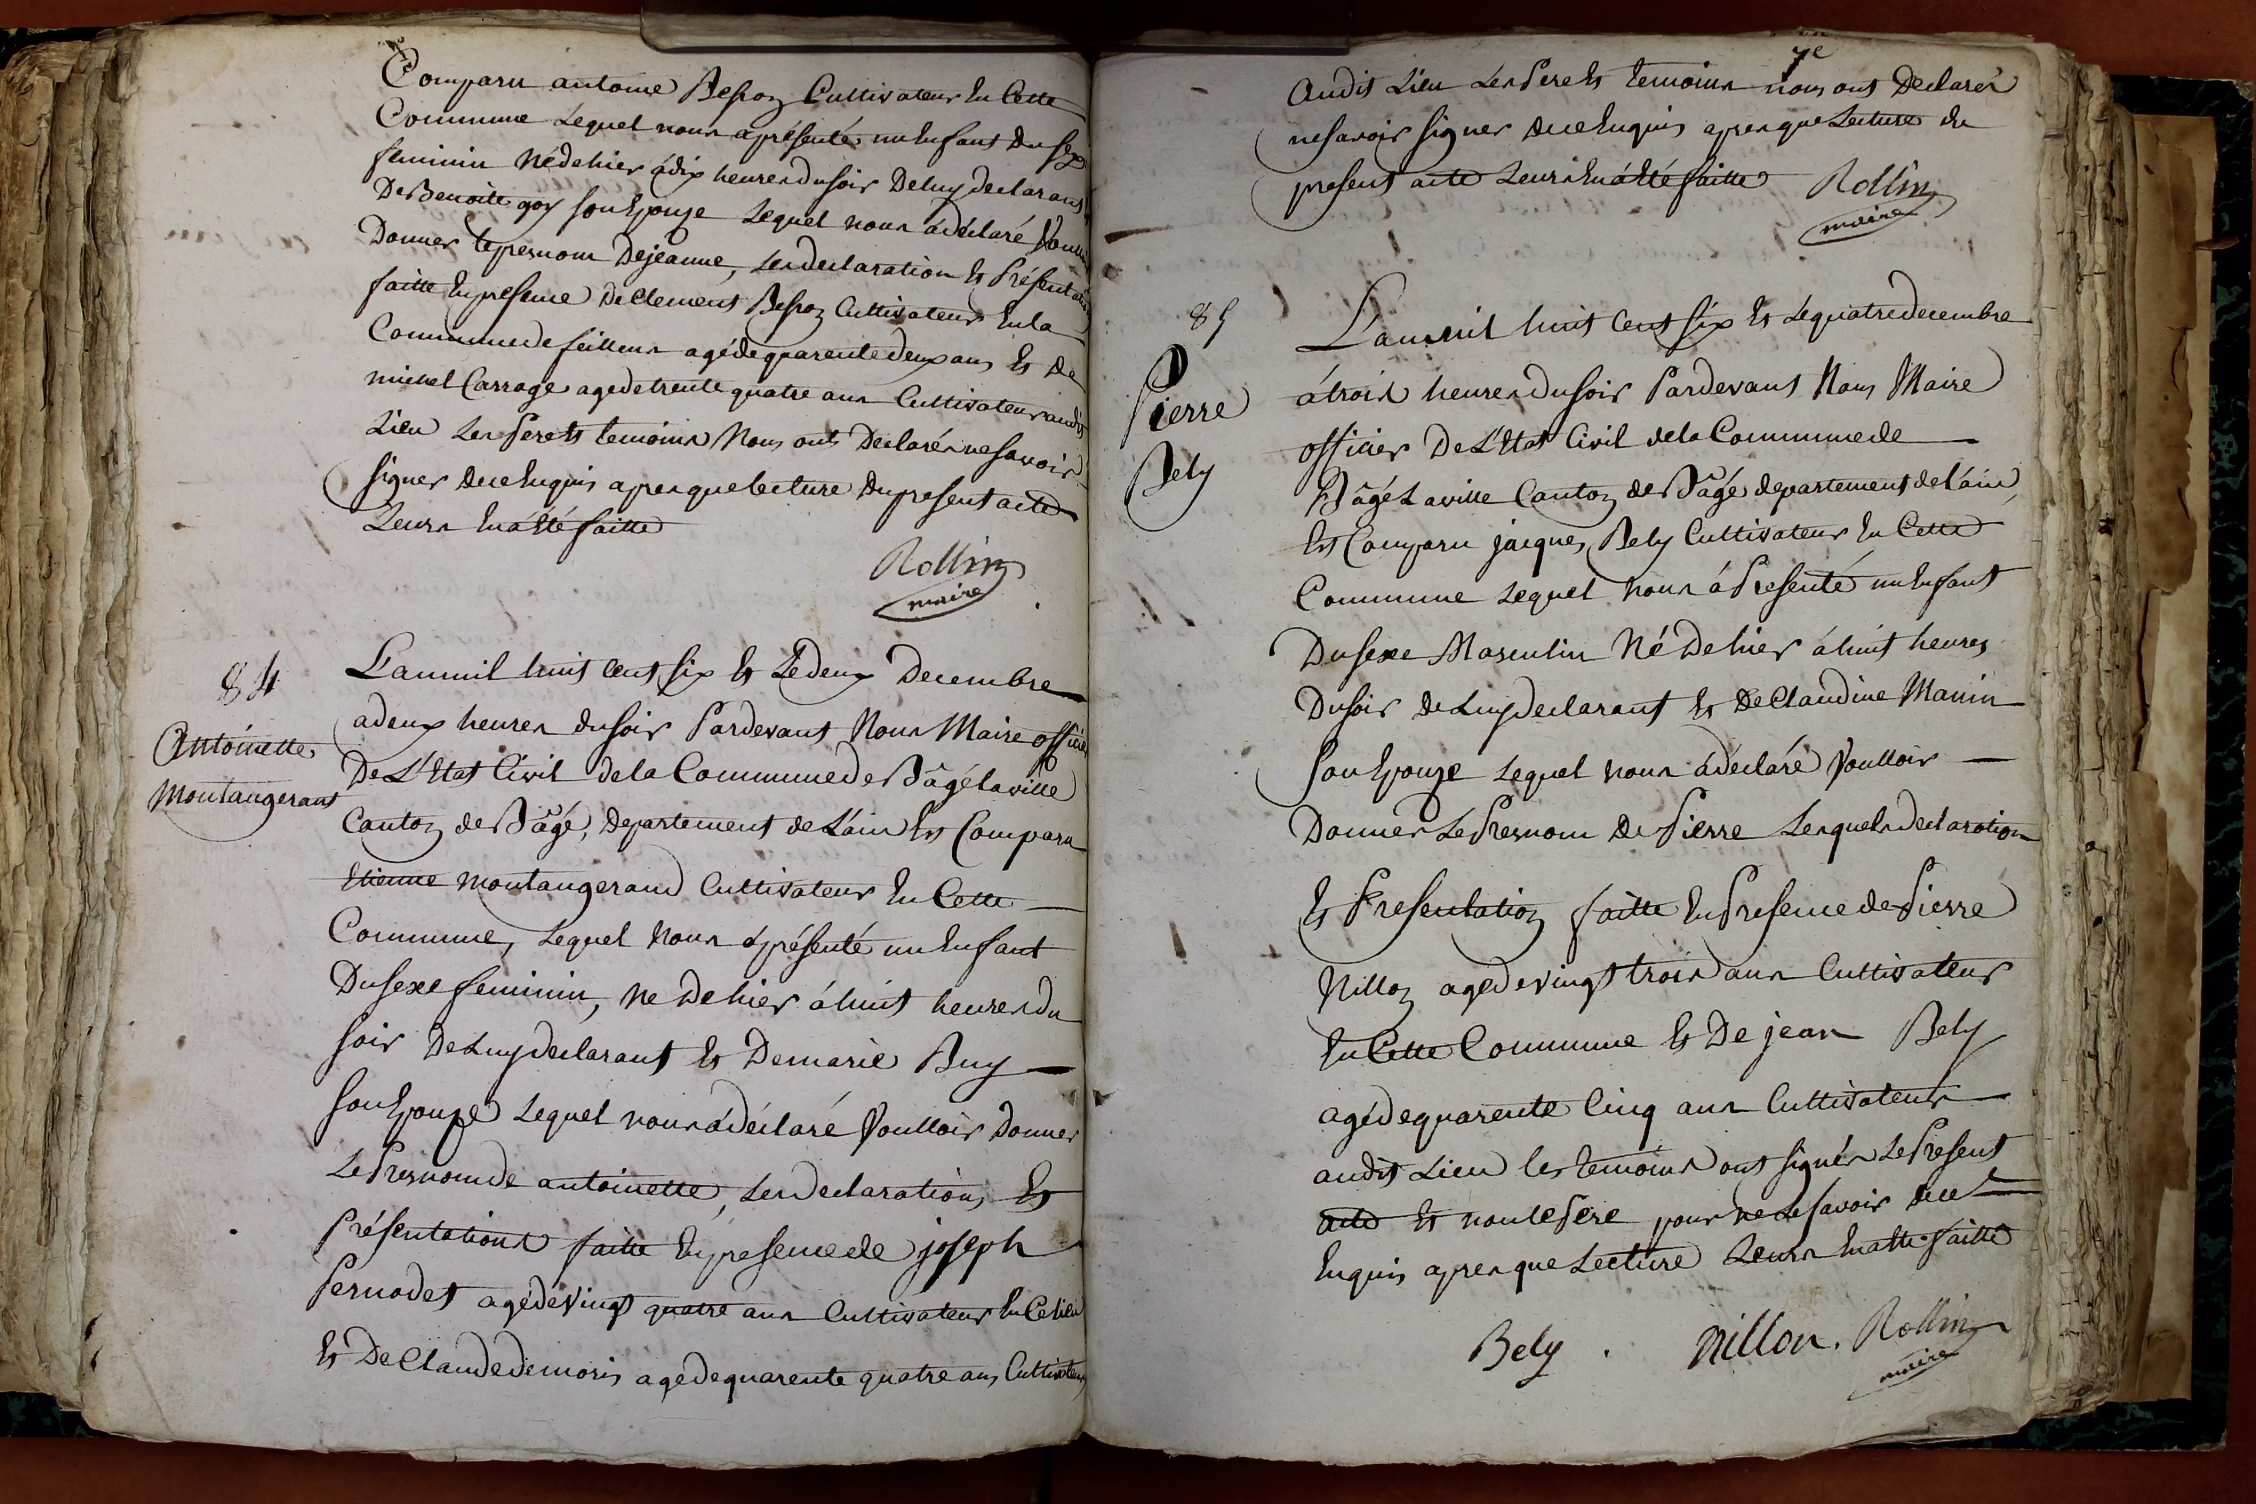 Comparu antoine Besson Cultivateur En Cette
Commune Lequel nous à présenté un Enfant du sexe
feminin Né de hier à dix heures du soir De luy declarant
De Benoite goy son Epouze Lequel nous à déclaré Voulloir
Donner le presnom De jeanne, Les declaration Et Présentation
faitte En presence De Clement Besson Cultivateur En la
Commune de feillens agé de quarente deux ans Et De
michel Carrage agé de trente quatre ans Cultivateur audit
Lieu Les Pere Et temoins Nous ont Declarés ne savoir
signer De ce Enquis apres que lecture Du present acte
Leurs En à Eté faitte
Rollin
maire
84
Antoinette
Montangerant
L'an mil huit cent six Et Le deux Decembre
a deux heures du soir Pardevant Nous Maire officier
De L'Etat Civil de la Commune de Bâgé la ville
Canton de Bâgé, Departement de L'ain Est Comparu
Etienne montangerand Cultivateur En Cette
Commune, Lequel Nous à présenté un Enfant
Du sexe feminin, Né De hier à huit heures du
soir De Luy declarant Et De marie Buy
son Epouze Lequel nous à déclaré Voulloir Donner
Le Presnom de antoinette, Les declarations Et
Présentations faitte En presence de joseph
Pernodet agé de Vingt quatre ans Cultivateur En Ce lieu
Et De Claude demoris agé de quarente quatre ans Cultivateur
7e
audit Lieu Les Pere Et temoins nous ont Declarés
ne savoir signer De ce Enquis apres que Lecture du
present acte Leurs En à Eté faitte
Rollin
maire
85
Pierre
Bely
L'an mil huit cent six Et Le quatre decembre
à trois heures du soir Pardevant Nous Maire
officier De L'Etat Civil de la Commune de
Bâgé Laville Canton de Bâgé departement de l'ain
Est Comparu jacques Bely Cultivateur En Cette
Commune Lequel Nous à Presenté un Enfant
Du sexe Masculin Né De hier à huit heures
Du soir De Luy declarant Et De Claudine Manin
son Epouze Lequel nous à déclaré Voulloir
Donner Le Presnom De Pierre Lesquels declaration
Et Presentation faitte En Presence de Pierre
Nillon agé de Vingt trois ans Cultivateur
En Cette Commune Et De jean Bely
agé de quarente Cinq ans Cultivateur
audit Lieu les temoins ont signés Le Present
acte Et non le Pere pour ne Le savoir De ce
Enquis apres que Lecture Leurs En atté faitte
Bely . Nillon . Rollin
maire